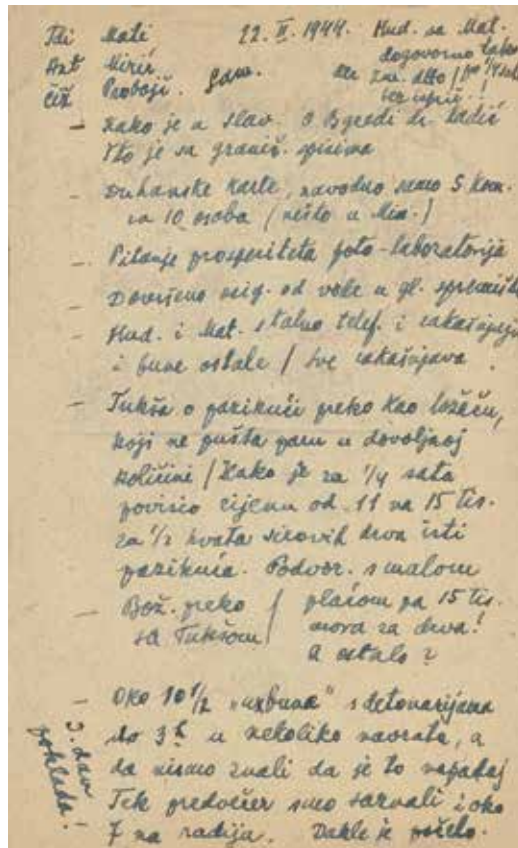 Tdi Mati 22. II. 1944. Hud. sa Mat.
Ant Mirić dogovorno
Čiž Probojč. gdm.
- Kako je u slav. O Bgredi dr. Ladić
Tko je sa granič. spisima
- Duhanske karte, navodno samo 5 kom.
za 10 osoba (nešto u Min.)
- Pitanje prosperiteta foto-laboratorija
- Dovršeno osig. od vode u gl. spremištu
- Hud. i Mat. stalno telef. i zakašnjuju
i bune ostale / sve zakašnjava
- Tukša o pazikući preko Kao ložeču,
koji ne pušta paru u dovoljnoj
količini / Kako je za 1/4 sata
povisio cijenu od 11 na 15 tis.
za 1/2 hvata sirovih drva isti
pazikuća. Podvor. s malom
- Bož. preko plaćom pa 15 tis.
sa Tukšom mora za drva!
a ostalo?
- Oko 10 1/2 "uzbuna" s detonacijama
do 3 h u nekoliko navrata, a
da nismo znali da je to napadaj
Tek predvečer smo saznali i oko
7 na radija. Dakle je počelo.
3. dan
poklada!